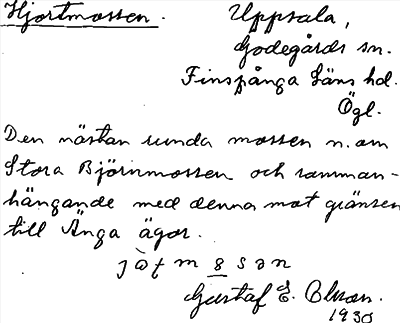 Hjortmossen. Uppsala,
Godegårds sn.
Finspånga läns hd.
Ögl.
Den nästan runda mossen n. om
Stora Björnmossen och samman-
hängande med denna mot gränsen
till Änga ägor.
Gustaf E. Olson.
1930